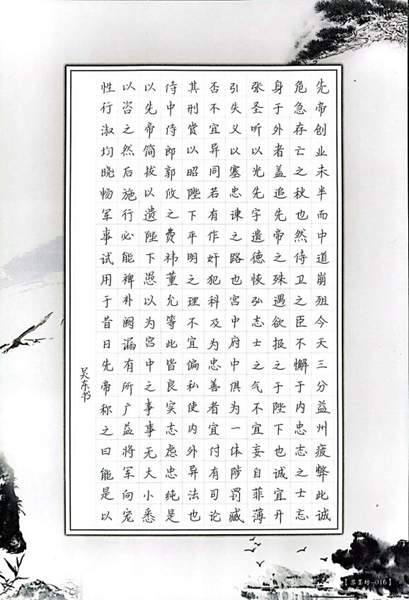 先帝创业未半而中道崩殂今天三分益州疲弊此诚
危急存亡之秋也然侍卫之臣不懈于内忠志之士忘
身于外者盖追先帝之殊遇欲报之于陛下也诚宜开
张圣听以光先帝遗德恢弘志士之气不宜妄自菲薄
引失义以塞忠谏之路也宫中府中俱为一体陟罚臧
否不宜异同若有作奸犯科及为忠善者宜付有司论
其刑赏以昭陛下平明之理不宜偏私使内外异法也
侍中侍郎郭攸之费祎董允等此皆良实志虑忠纯是
以先帝简拔以遗陛下愚以为宫中之事事无大小悉
以咨之然后施行必能裨补阙漏有所广益将军向宠
性行淑均晓畅军事试用于昔日先帝称之曰能是以
吴东书
-016】